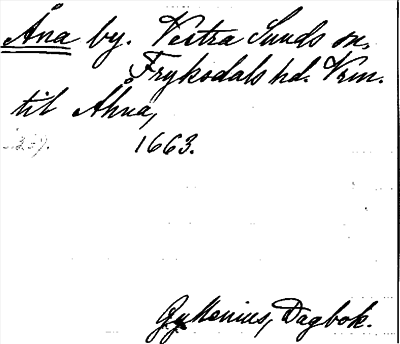 Åna by. Vestra Sunds sn,
Fryksdals hd. Vrm.
til Åhna,
1663.
Gyllenius, Dagbok.